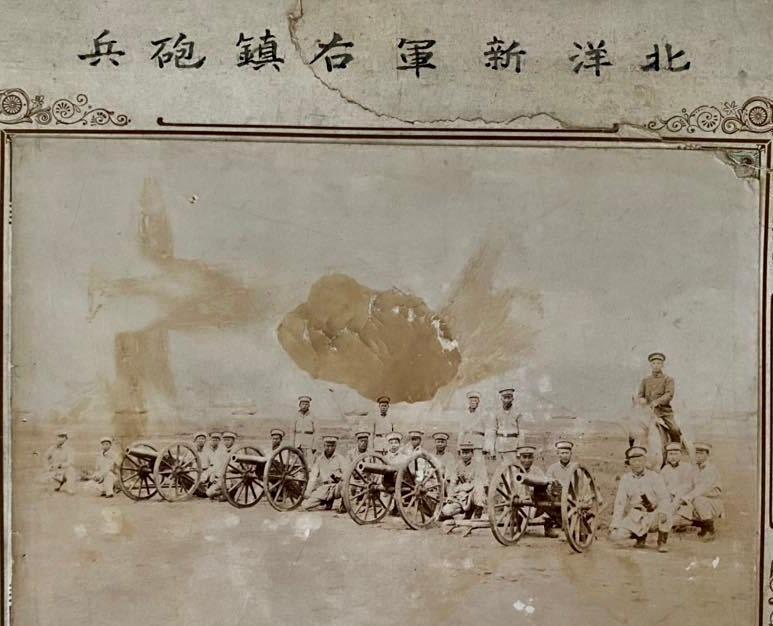 北洋新軍右鎮砲兵